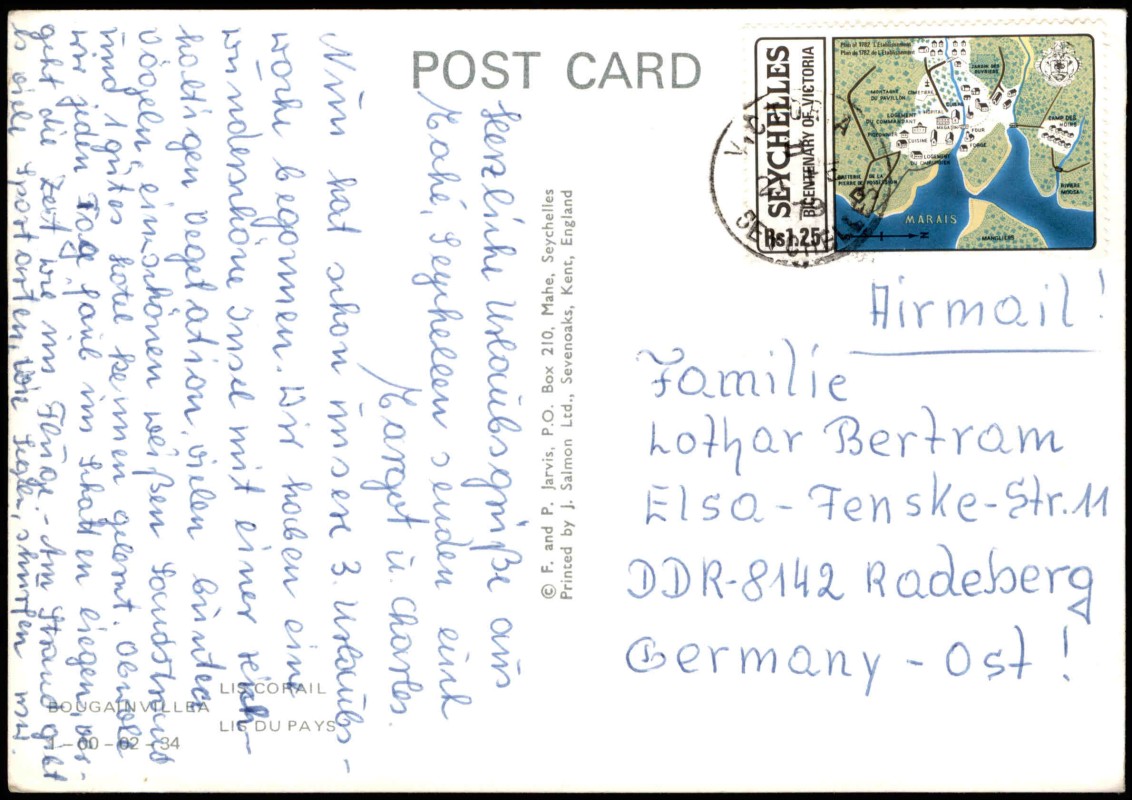 POST CARD
Herzliche Urlaubsgrüße aus
Mahé, Seychellen senden euch
Margot u. Charles.
Nun hat schon unsere 3. Urlaubs-
woche begonnen. Wir haben eine
wunderschöne Insel mit einer reich-
haltigen Vegetation, vielen bunten
Vögeln, einen schönen weißen Sandstrand
und 1 gutes Hotel kennen gelernt. Obwohl
wir jeden Tag faul im Schatten liegen, ver-
geht die Zeit wie im Fluge. - Am Strand gibt
es viele Sportarten, wie Segeln, schnorcheln usw.
LIS CORAIL
BOUGAINVILLEA
LIS DU PAYS
1-60-02-34
© F. and P. Jarvis, P.O. Box 210, Mahe, Seychelles
Printed by J. Salmon Ltd., Sevenoaks, Kent, England
SEYCHELLES
BICENTENARY OF VICTORIA
Rs1.25
Plan of 1782 L'Etablissement
Plan de 1782 de l'Etablissement
JARDIN DES
MONTAGNE
DU PAVILLON
CIMETIERE
HOPITAL
LOGEMENT
DU COMMANDANT
MAGASIN
CUISINE
FOUR
FORGE
LOGEMENT
DU CHIRURGIEN
CAMP DES
NOIRS
PIERRE DE POSSESSION
RIVIERE
MOUSSA
MARAIS
MANGLIERS
N
Airmail!
Familie
Lothar Bertram
Elsa-Fenske-Str. 11
DDR-8142 Radeberg
Germany - Ost!